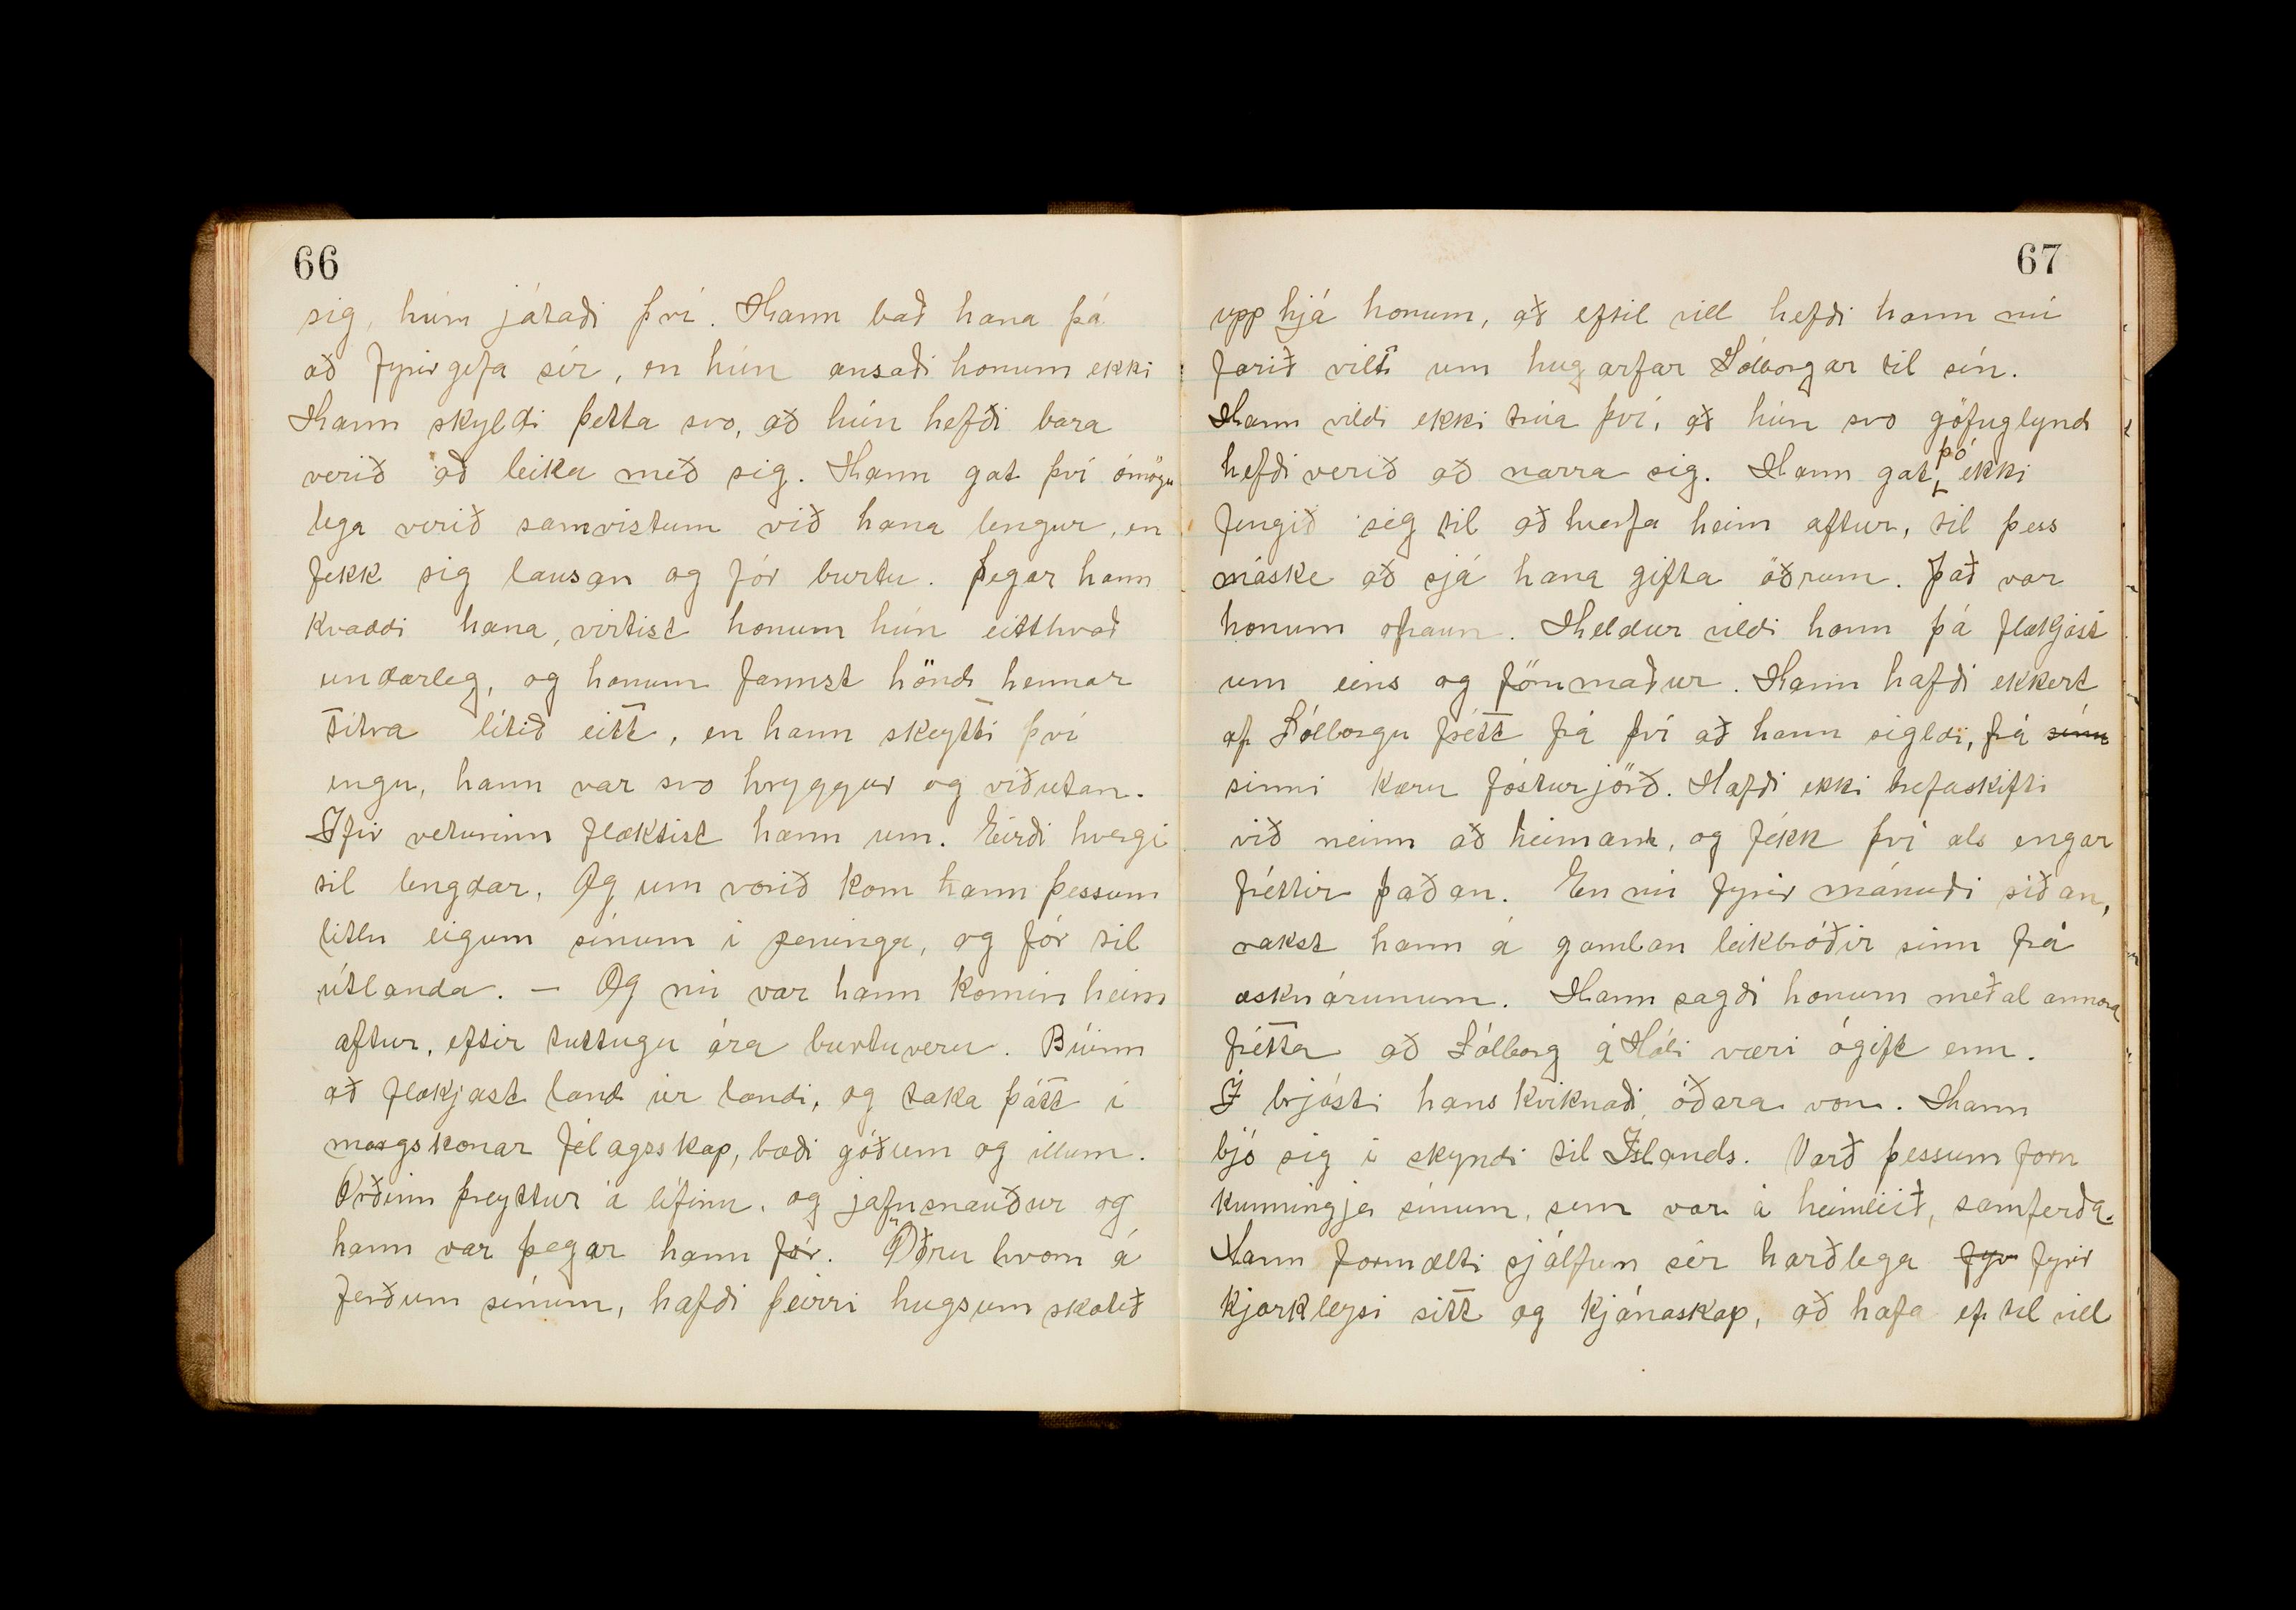 66
sig, hún játaði því. Hann bað hana þá
að fyrirgefa sér, en hún ansaði honum ekki
Hann skyldi þetta svo, að hún hefði bara
verið að leika með sig. Hann gat því ómögu
lega verið samvistum við hana lengur, en
fekk sig lausan og fór burtu. Þegar hann
kvaddi hana, virtist honum hún eitthvað
undarleg, og honum fannst hönd hennar
titra lítið eitt, en hann skeytti því
engu, hann var svo hryggur og viðutan.
Ifir veturinn flæktist hann um. Eirði hvergi
til lengdar. Og um vorið kom hann þessum
litlu eigum sínum í peninga, og fór til
útlanda. — Og nú var hann komin heim
aftur, eftir tuttugu ára burtuveru. Búinn
að flækjast land úr landi, og taka þátt í
margskonar félagsskap, bæði góðum og illum.
Orðinn þreyttur á lífinu, og jafnsnauður og
hann var þegar hann fór. Öðru hvoru á
ferðum sínum, hafði þeirri hugsum skotið
67
upp hjá honum, að eftil vill hefði hann nú
farið vilt um hugarfar Sólborgar til sín.
Hann vildi ekki trúa því, að hún svo göfuglynd
hefði verið að narra sig. Hann gat þó ekki
fengið sig til að hverfa heim aftur, til þess
máske að sjá hana gifta öðrum. Það var
honum ofraun. Heldur vildi hann þá flækjast
um eins og förumaður. Hann hafði ekkert
af Sólborgu frétt frá því að hann sigldi, frá sínu
sinni kæru fósturjörð. Hafði ekki brefaskifti
við neinn að heiman, og fékk því als engar
fréttir þaðan. En nú fyrir mánuði síðan,
rakst hann á gamlan leikbróðir sinn frá
æskuárunum. Hann sagði honum meðal annara
frétta að Sólborg á Hóli væri ógift enn.
Í brjósti hans kviknaði óðara von. Hann
bjó sig í skyndi til Íslands. Varð þessum forn
kunningja sínum, sem var á heimleið, samferða.
Hann formælti sjálfum sér harðlega fyr fyrir
kjarkleysi sitt og kjánaskap, að hafa ef til vill